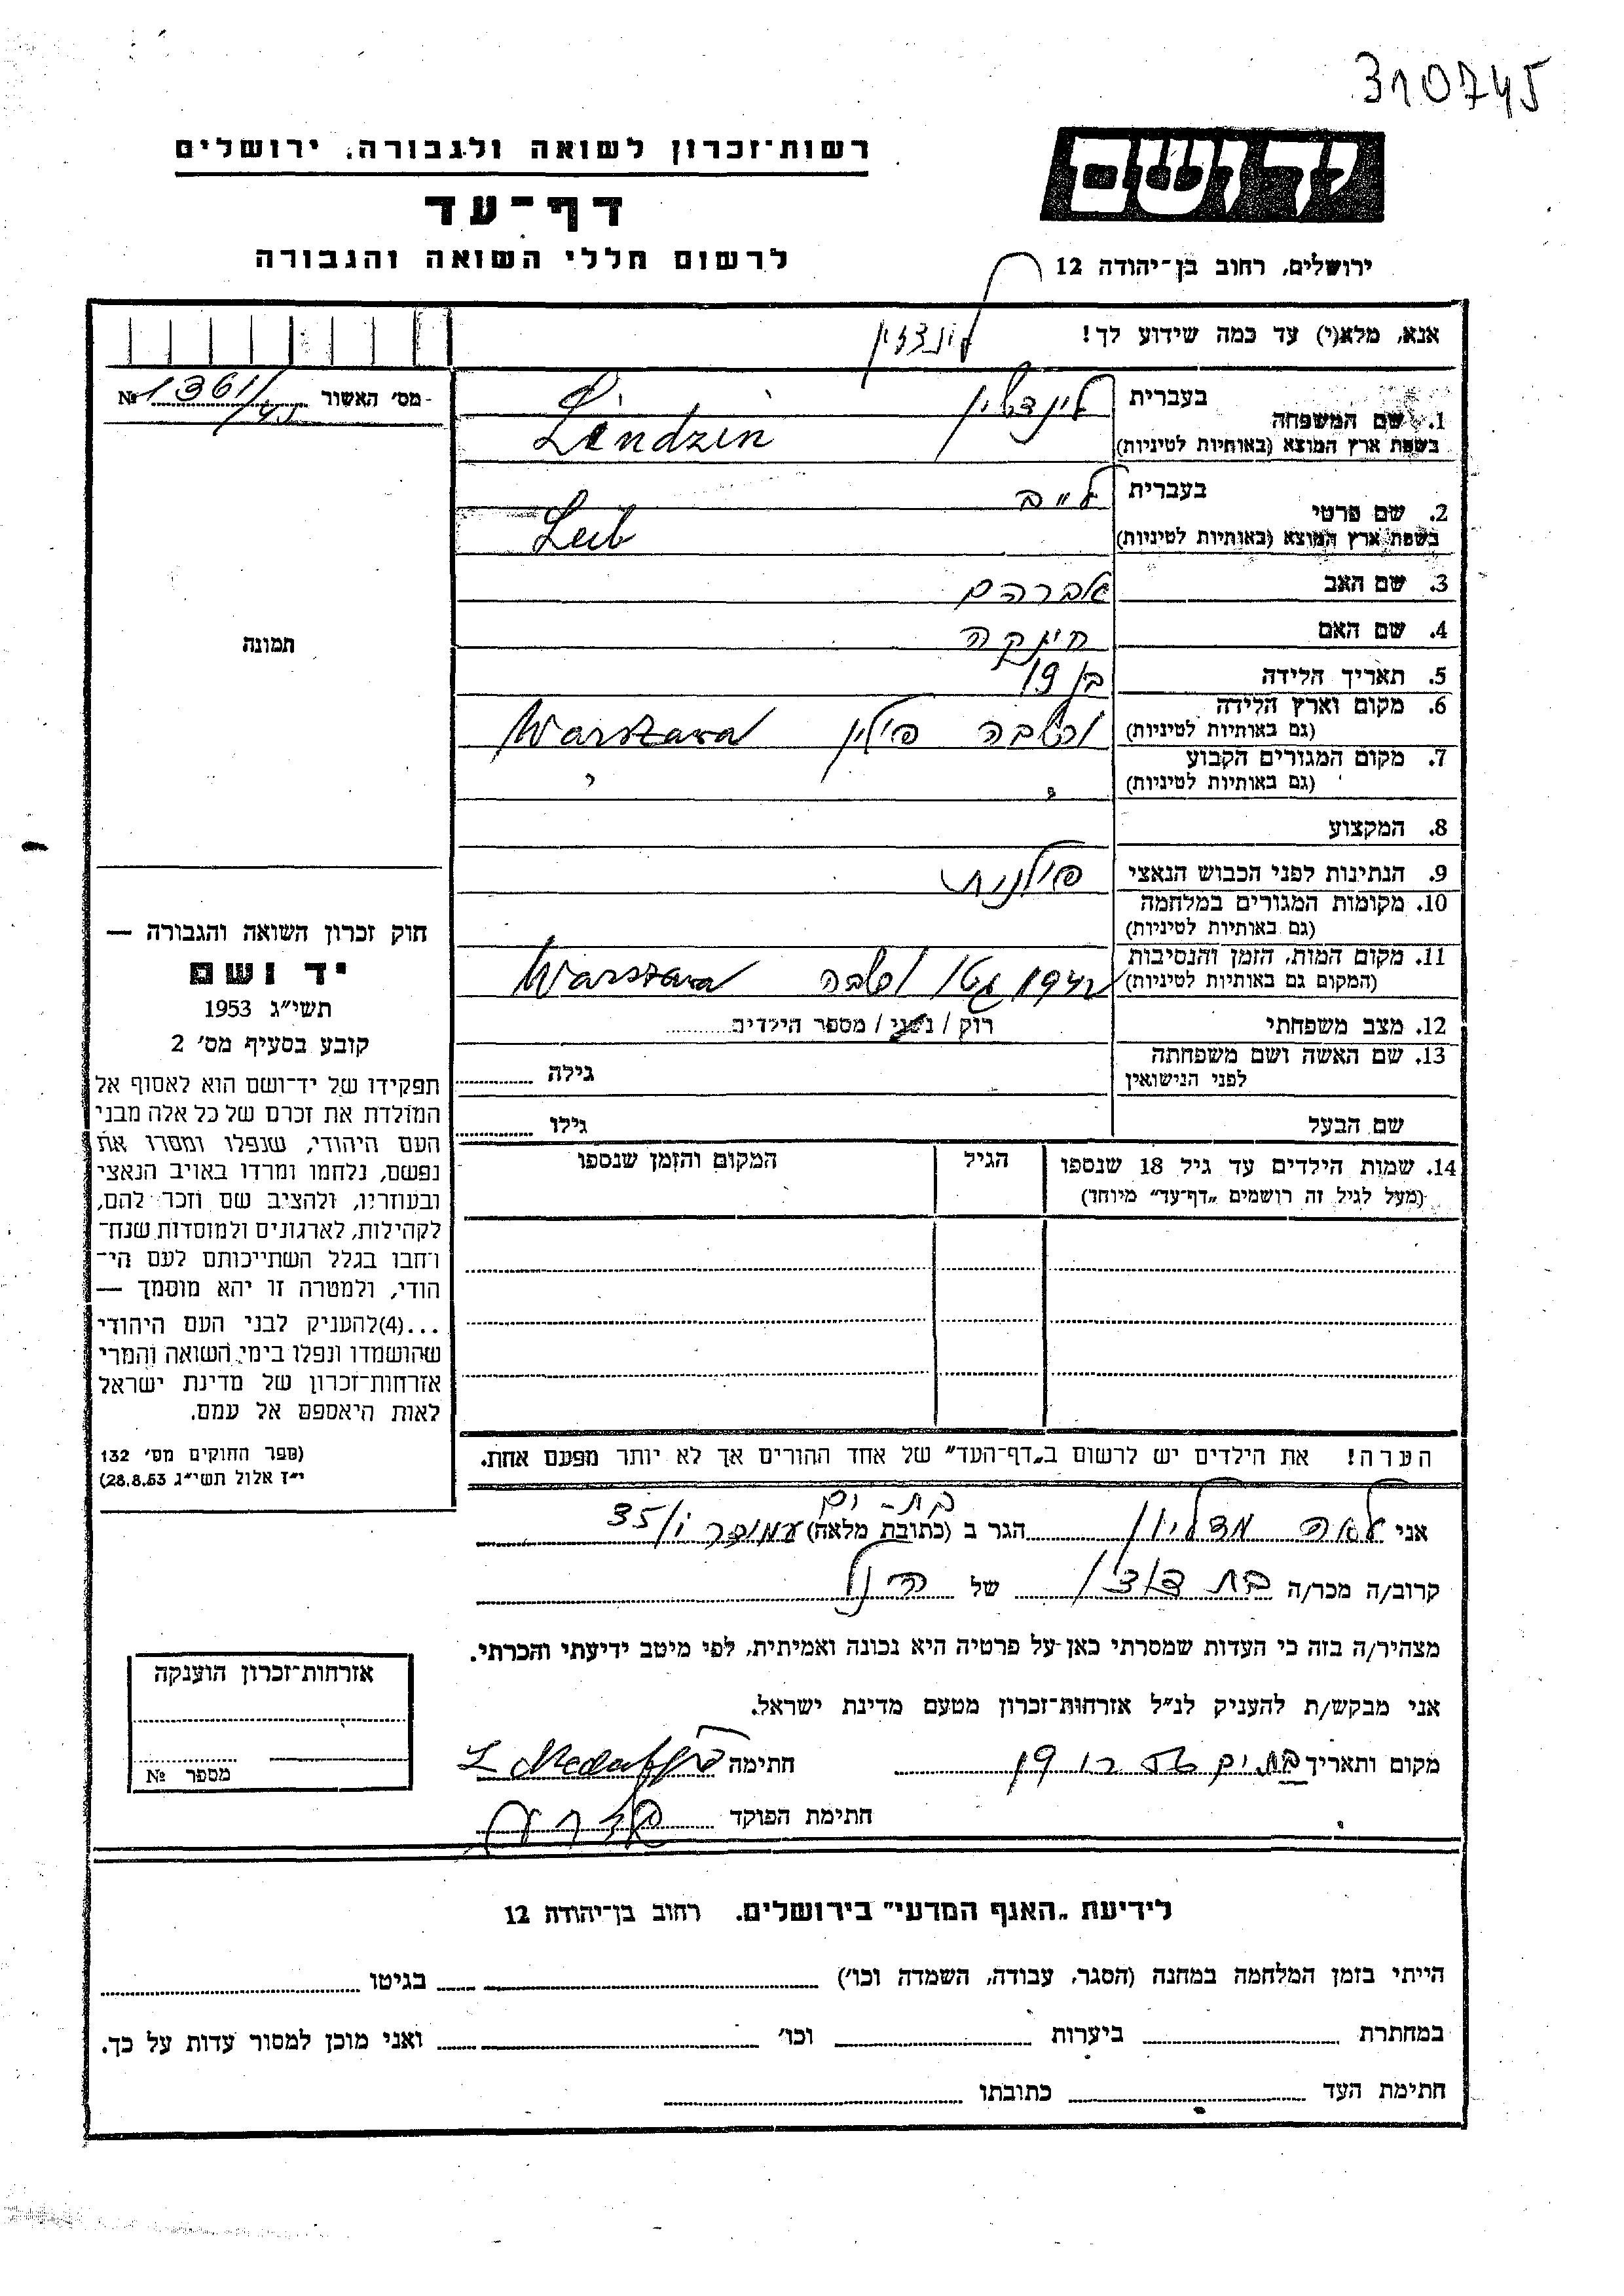 310745
יד ושם
רשות־זכרון לשואה ולגבורה, ירושלים
דף־עד
לרשום חללי השואה והגבורה
ירושלים, רחוב בן־יהודה 12
אנא, מלא(י) עד כמה שידוע לך!
לונדזין
מס׳ האשור № 1361/45
1. שם המשפחה
בעברית לינדזין
בשפת ארץ המוצא (באותיות לטיניות) Lendzin
2. שם פרטי
בעברית לייב
בשפת ארץ המוצא (באותיות לטיניות) Leib
3. שם האב אברהם
4. שם האם חינקה
5. תאריך הלידה בן 19
6. מקום וארץ הלידה
(גם באותיות לטיניות) ורשבה פולין Warszawa
7. מקום המגורים הקבוע
(גם באותיות לטיניות) " "
8. המקצוע
9. הנתינות לפני הכבוש הנאצי פולנית
10. מקומות המגורים במלחמה
(גם באותיות לטיניות)
11. מקום המות, הזמן והנסיבות
(המקום גם באותיות לטיניות) 1942 גטו ורשבה Warszawa
12. מצב משפחתי רוק / נשוי / מספר הילדים
13. שם האשה ושם משפחתה
לפני הנישואין
גילה
שם הבעל
גילו
14. שמות הילדים עד גיל 18 שנספו
(מעל לגיל זה רושמים „דף־עד״ מיוחד)
הגיל
המקום והזמן שנספו
תמונה
חוק זכרון השואה והגבורה —
יד ושם
תשי״ג 1953
קובע בסעיף מס׳ 2
תפקידו של יד־ושם הוא לאסוף אל
המולדת את זכרם של כל אלה מבני
העם היהודי, שנפלו ומסרו את
נפשם, נלחמו ומרדו באויב הנאצי
ובעוזריו, ולהציב שם וזכר להם,
לקהילות, לארגונים ולמוסדות שנח־
רחבו בגלל השתייכותם לעם הי־
הודי, ולמטרה זו יהא מוסמך —
...(4)להעניק לבני העם היהודי
שהושמדו ונפלו בימי השואה והמרי
אזרחות־זכרון של מדינת ישראל
לאות היאספם אל עמם.
(ספר החוקים מס׳ 132
י״ז אלול תשי״ג 28.8.53)
הערה! את הילדים יש לרשום ב„דף־העד״ של אחד ההורים אך לא יותר מפעם אחת.
בת-ים
אני לאה הגר ב (כתובת מלאה) 35/
קרוב/ה מכר/ה בת דוד של הנ״ל
מצהיר/ה בזה כי העדות שמסרתי כאן על פרטיה היא נכונה ואמיתית, לפי מיטב ידיעתי והכרתי.
אני מבקש/ת להעניק לנ״ל אזרחות־זכרון מטעם מדינת ישראל.
מקום ותאריך בת ים חתימה
חתימת הפוקד
אזרחות־זכרון הוענקה
מספר №
לידיעת „האגף המדעי״ בירושלים. רחוב בן־יהודה 12
הייתי בזמן המלחמה במחנה (הסגר, עבודה, השמדה וכו׳) בגיטו
במחתרת ביערות וכו׳ ואני מוכן למסור עדות על כך.
חתימת העד כתובתו